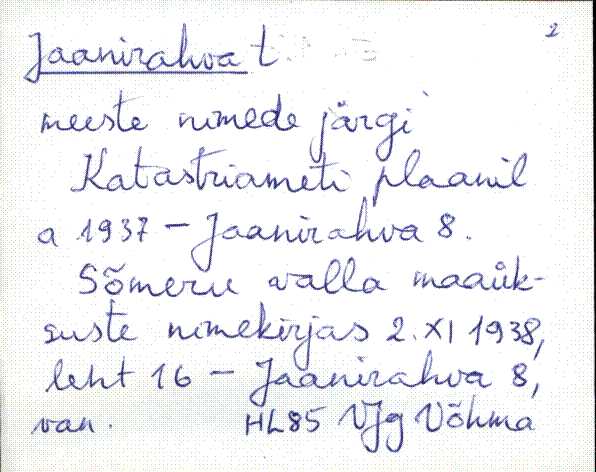 2
Jaanirahva t
meeste nimede järgi
Katastriameti plaanil
a 1937 – Jaanirahva 8.
Sõmeru valla maaük-
suste nimekirjas 2. XI 1938,
leht 16 – Jaanirahva 8,
van. HL85 VJg Võhma